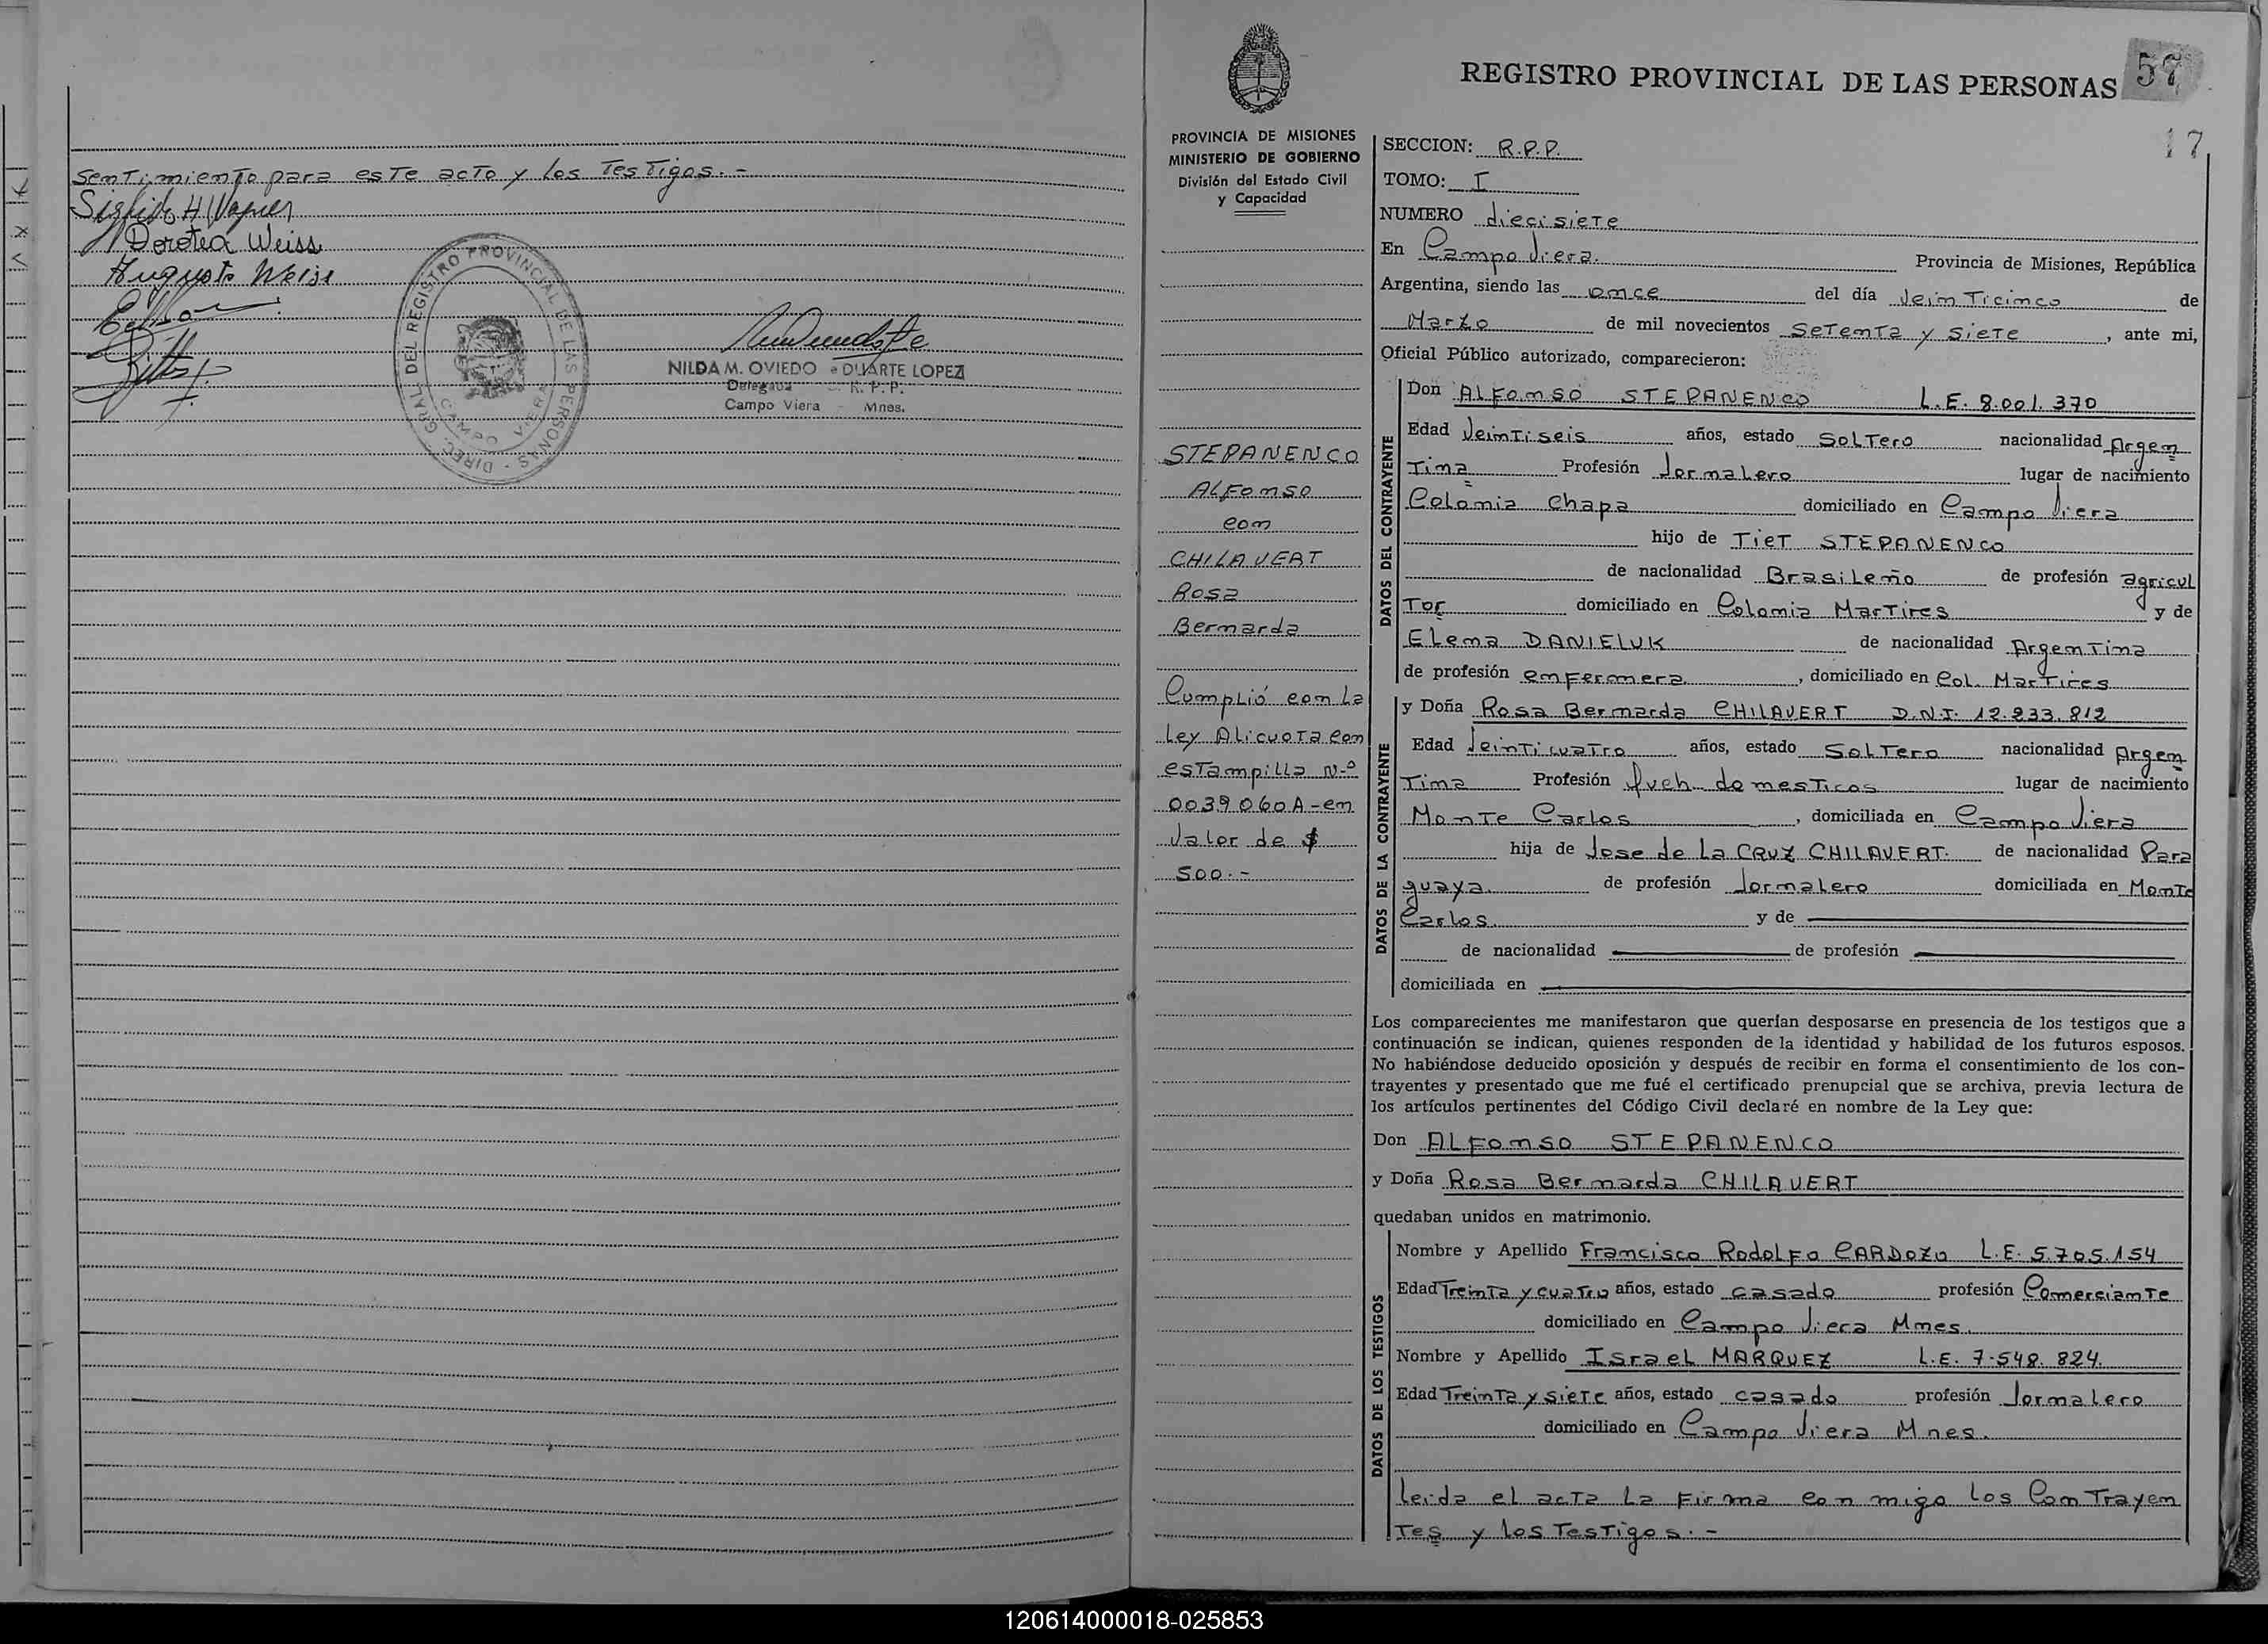 sentimiento para este acto y los Testigos.-
Dorotea Weiss
Augusto Weiss
DIREC. GRAL DEL REGISTRO PROVINCIAL DE LAS PERSONAS - CAMPO VIERA
NILDA M. OVIEDO DUARTE LOPEZ
R. P. P.
Campo Viera Mnes.
REGISTRO PROVINCIAL DE LAS PERSONAS
57
17
PROVINCIA DE MISIONES
MINISTERIO DE GOBIERNO
División del Estado Civil
y Capacidad
STEPANENCO
ALFonso
con
CHILAVERT
Rosa
Bernarda
Cumplió con la
Ley Alicuota con
estampilla N.º
0039060A-en
Valor de $
500.-
SECCION: R.P.P.
TOMO: I
NUMERO diecisiete
En Campo Viera. Provincia de Misiones, República
Argentina, siendo las once del día Veinticinco de
Marzo de mil novecientos setenta y siete, ante mi,
Oficial Público autorizado, comparecieron:
DATOS DEL CONTRAYENTE
Don ALFonso STEPANENCO L.E. 8.001.370
Edad Veintiseis años, estado Soltero nacionalidad Argen
tina Profesión Jornalero lugar de nacimiento
Colonia Chapa domiciliado en Campo Viera
hijo de Tiet STEPANENCO
de nacionalidad Brasileño de profesión agricul
Tor domiciliado en Colonia Martires y de
Elena DANIELUK de nacionalidad Argentina
de profesión enfermera, domiciliado en Col. Martires
DATOS DE LA CONTRAYENTE
y Doña Rosa Bernarda CHILAVERT D.N.I. 12.233.812
Edad Veinticuatro años, estado Soltero nacionalidad Argen
tina Profesión Queh. domesticos lugar de nacimiento
Monte Carlos, domiciliada en Campo Viera
hija de Jose de La CRUZ CHILAVERT. de nacionalidad Para
guaya. de profesión Jornalero domiciliada en Monte
Carlos. y de
de nacionalidad de profesión
domiciliada en
Los comparecientes me manifestaron que querían desposarse en presencia de los testigos que a
continuación se indican, quienes responden de la identidad y habilidad de los futuros esposos.
No habiéndose deducido oposición y después de recibir en forma el consentimiento de los con-
trayentes y presentado que me fué el certificado prenupcial que se archiva, previa lectura de
los artículos pertinentes del Código Civil declaré en nombre de la Ley que:
Don ALFonso STEPANENCO
y Doña Rosa Bernarda CHILAVERT
quedaban unidos en matrimonio.
DATOS DE LOS TESTIGOS
Nombre y Apellido Francisco Rodolfo CARDOZO L.E. 5.705.154
Edad Treinta y cuatro años, estado casado profesión Comerciante
domiciliado en Campo Viera Mnes.
Nombre y Apellido Israel MARQUEZ L.E. 7.548.824.
Edad Treinta y siete años, estado casado profesión Jornalero
domiciliado en Campo Viera Mnes.
leida el acta la firma con migo los Contrayen
tes y los Testigos.-
120614000018-025853